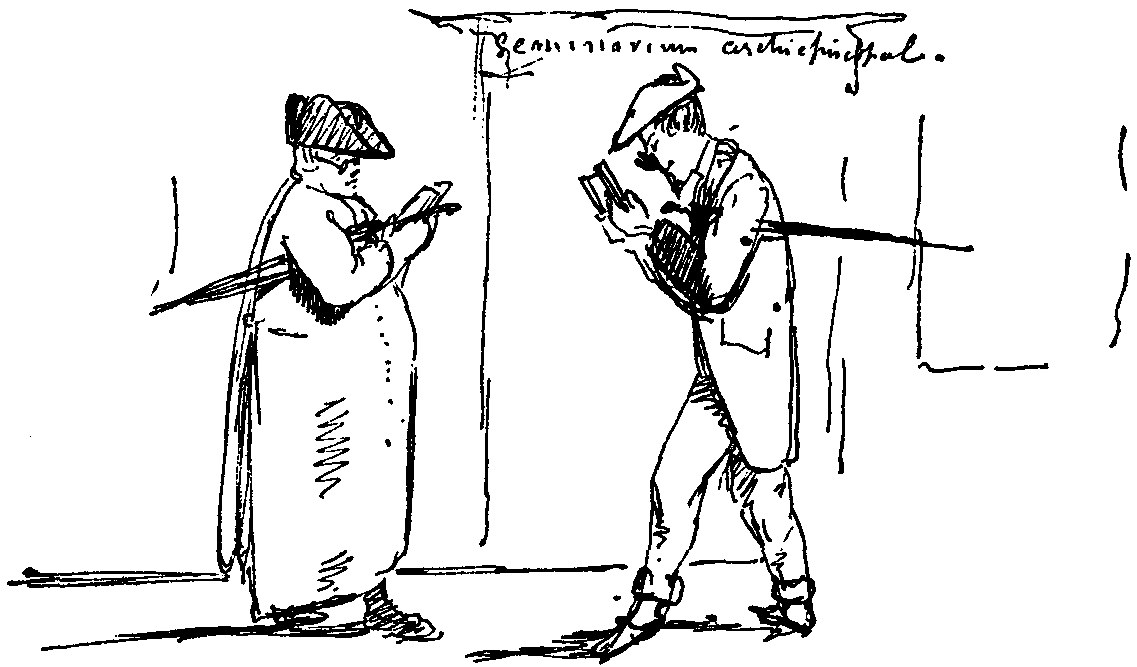 Seminarium archiepiscopal.